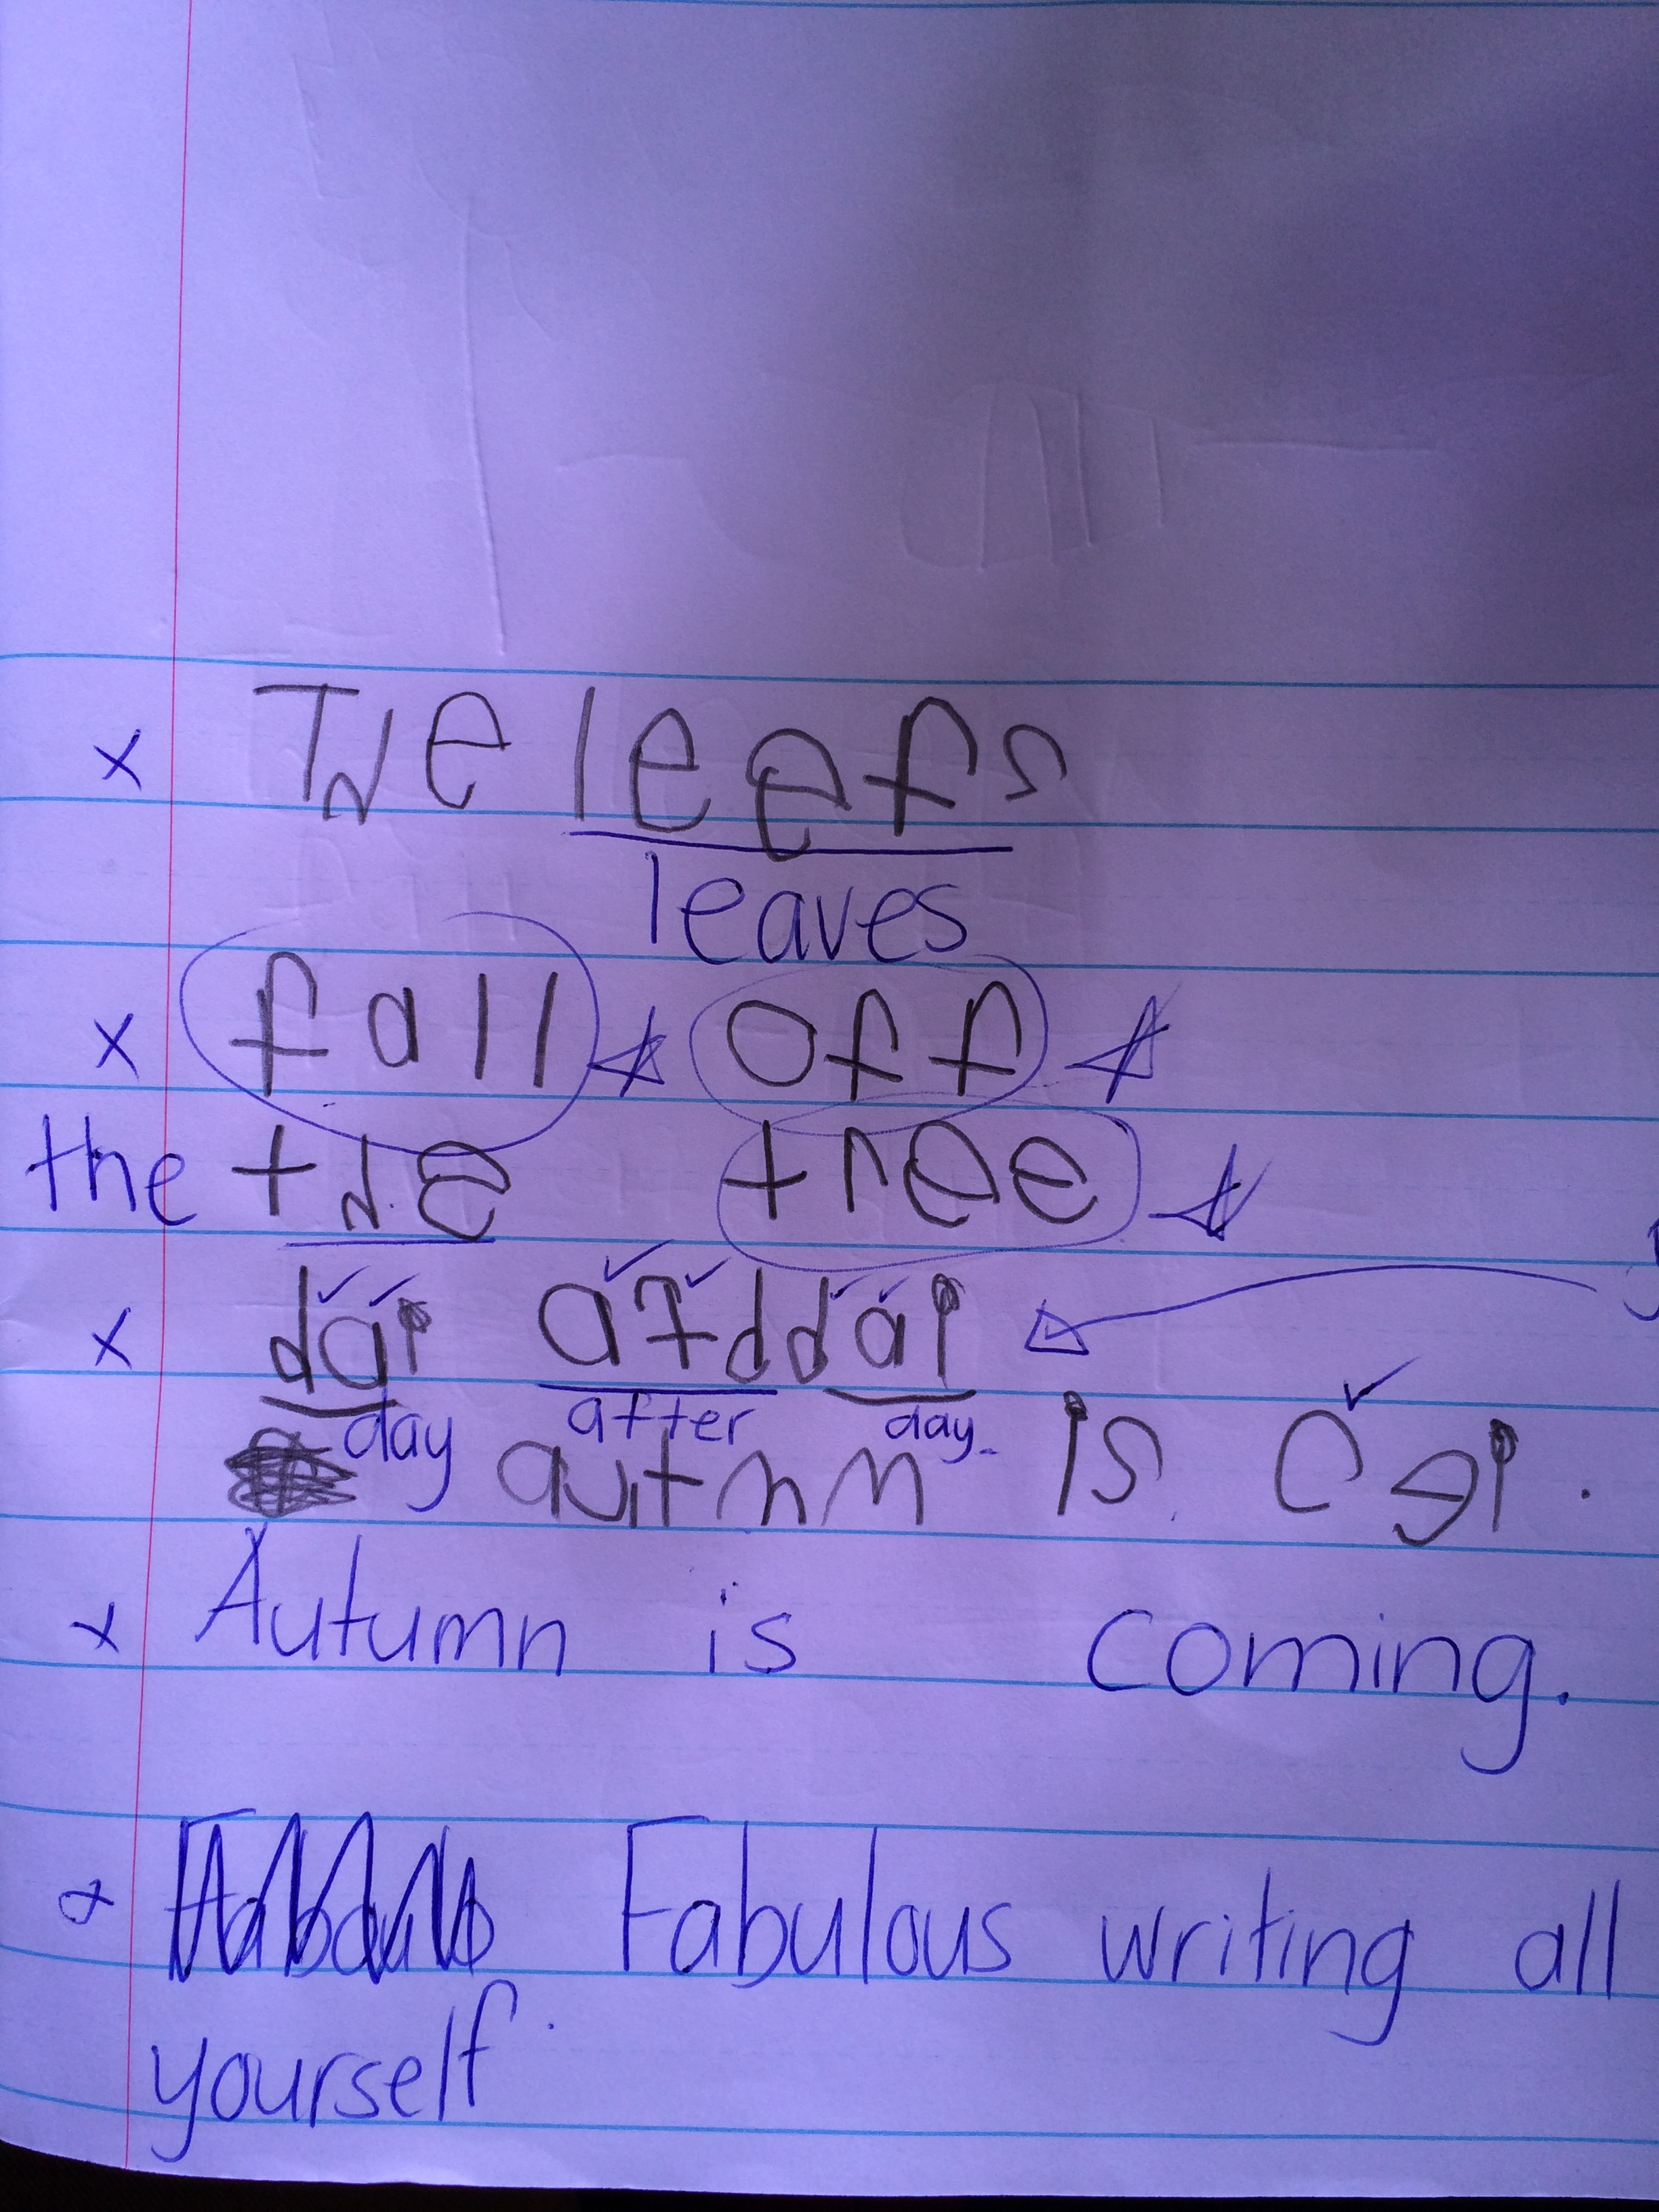 The leefs
leaves
fall off
the the tree
dai afd dai
day after day
autmn is cgi.
Autumn is coming.
Fabulous writing all
yourself.